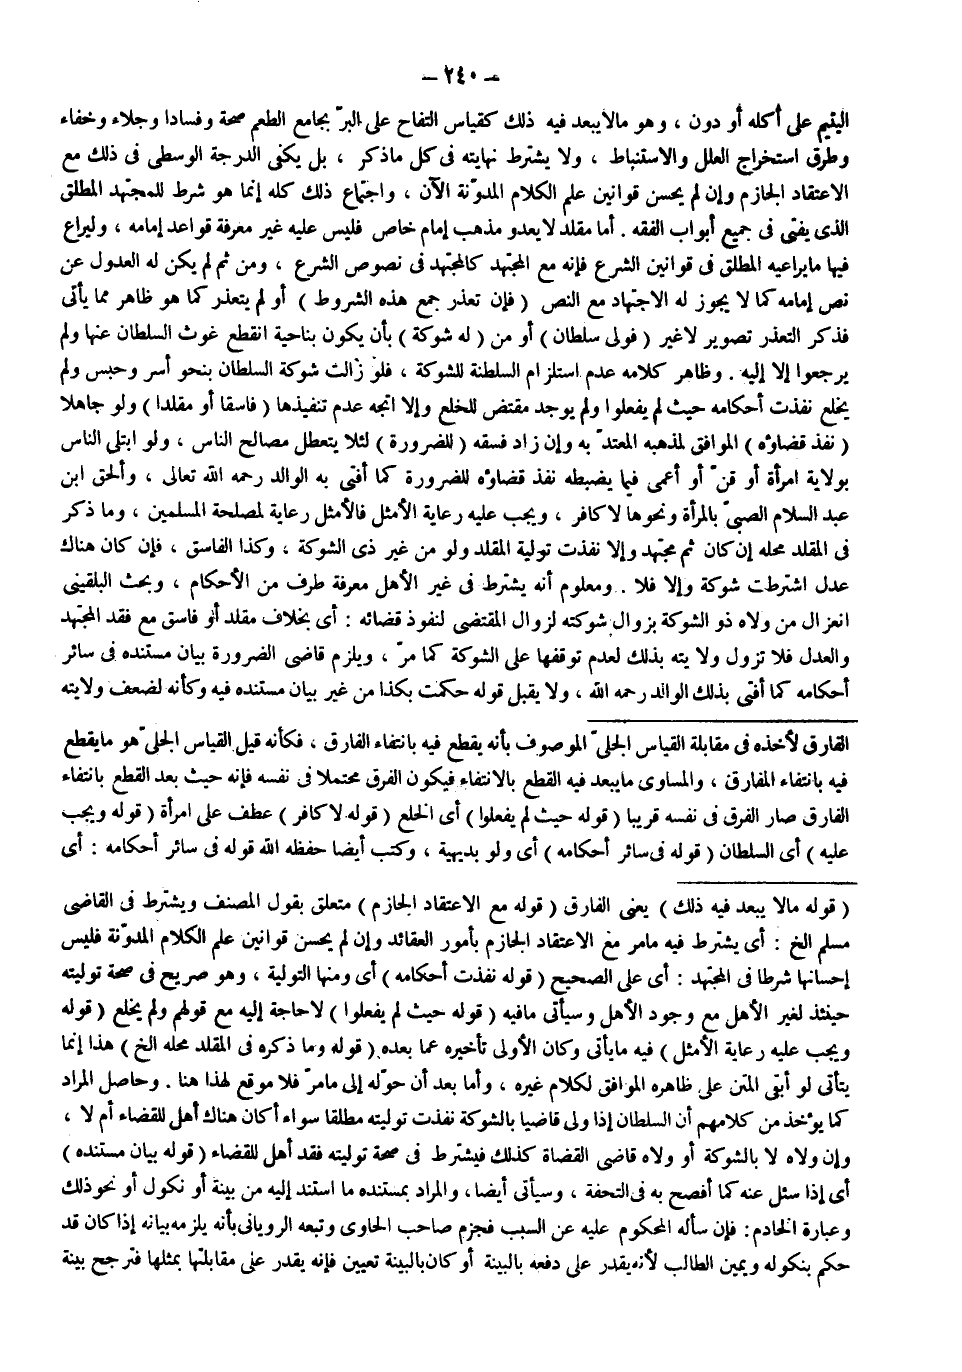 – ٢٤٠ –
اليتيم على أكله أو دون ، وهو مالايبعد فيه ذلك كقياس التفاح على البرّ بجامع الطعم صحة وفسادا وجلاء وخفاء
وطرق استخراج العلل والاستنباط ، ولا يشترط نهايته فى كل ماذكر ، بل يكفى الدرجة الوسطى فى ذلك مع
الاعتقاد الجازم وإن لم يحسن قوانين علم الكلام المدوّنة الآن ، واجتماع ذلك كله إنما هو شرط للمجتهد المطلق
الذى يفتى فى جميع أبواب الفقه . أما مقلد لايعدو مذهب إمام خاص فليس عليه غير معرفة قواعد إمامه ، وليراع
فيها مايراعيه المطلق فى قوانين الشرع فإنه مع المجتهد كالمجتهد فى نصوص الشرع ، ومن ثم لم يكن له العدول عن
نص إمامه كما لا يجوز له الاجتهاد مع النص ( فإن تعذر جمع هذه الشروط ) أو لم يتعذر كما هو ظاهر مما يأتى
فذكر التعذر تصوير لاغير ( فولى سلطان ) أو من ( له شوكة ) بأن يكون بناحية انقطع غوث السلطان عنها ولم
يرجعوا إلا إليه . وظاهر كلامه عدم استلزام السلطنة للشوكة ، فلو زالت شوكة السلطان بنحو أسر وحبس ولم
يخلع نفذت أحكامه حيث لم يفعلوا ولم يوجد مقتض للخلع وإلا اتجه عدم تنفيذها ( فاسقا أو مقلدا ) ولو جاهلا
( نفذ قضاؤه ) الموافق لمذهبه المعتدّ به وإن زاد فسقه ( للضرورة ) لئلا يتعطل مصالح الناس ، ولو ابتلى الناس
بولاية امرأة أو قنّ أو أعمى فيما يضبطه نفذ قضاؤه للضرورة كما أفتى به الوالد رحمه الله تعالى ، وألحق ابن
عبد السلام الصبىّ بالمرأة ونحوها لاكافر ، ويجب عليه رعاية الأمثل فالأمثل رعاية لمصلحة المسلمين ، وما ذكر
فى المقلد محله إن كان ثم مجتهد وإلا نفذت تولية المقلد ولو من غير ذى الشوكة ، وكذا الفاسق ، فإن كان هناك
عدل اشترطت شوكة وإلا فلا . ومعلوم أنه يشترط فى غير الأهل معرفة طرف من الأحكام ، وبحث البلقينى
انعزال من ولاه ذو الشوكة بزوال شوكته لزوال المقتضى لنفوذ قضائه : أى بخلاف مقلد أو فاسق مع فقد المجتهد
والعدل فلا تزول ولا يته بذلك لعدم توقفها على الشوكة كما مرّ ، ويلزم قاضى الضرورة بيان مستنده فى سائر
أحكامه كما أفتى بذلك الوالد رحمه الله ، ولا يقبل قوله حكمت بكذا من غير بيان مستنده فيه وكأنه لضعف ولايته
الفارق لأخذه فى مقابلة القياس الجلىّ الموصوف بأنه يقطع فيه بانتفاء الفارق ، فكأنه قيل القياس الجلىّ هو مايقطع
فيه بانتفاء المفارق ، والمساوى مايبعد فيه القطع بالانتفاء فيكون الفرق محتملا فى نفسه فإنه حيث بعد القطع بانتفاء
الفارق صار الفرق فى نفسه قريبا ( قوله حيث لم يفعلوا ) أى الخلع ( قوله لاكافر ) عطف على امرأة ( قوله ويجب
عليه ) أى السلطان ( قوله فى سائر أحكامه ) أى ولو بديهية ، وكتب أيضا حفظه الله قوله فى سائر أحكامه : أى
( قوله مالا يبعد فيه ذلك ) يعنى الفارق ( قوله مع الاعتقاد الجازم ) متعلق بقول المصنف ويشترط فى القاضى
مسلم الخ : أى يشترط فيه مامر مع الاعتقاد الجازم بأمور العقائد وإن لم يحسن قوانين علم الكلام المدوّنة فليس
إحسانها شرطا فى المجتهد : أى على الصحيح ( قوله نفذت أحكامه ) أى ومنها التولية ، وهو صريح فى صحة توليته
حينئذ لغير الأهل مع وجود الأهل وسيأتى مافيه ( قوله حيث لم يفعلوا ) لاحاجة إليه مع قولهم ولم يخلع ( قوله
ويجب عليه رعاية الأمثل ) فيه مايأتى وكان الأولى تأخيره عما بعده ( قوله وما ذكره فى المقلد محله الخ ) هذا إنما
يتأتى لو أبقى المتن على ظاهره الموافق لكلام غيره ، وأما بعد أن حوّله إلى مامرّ فلا موقع لهذا هنا . وحاصل المراد
كما يؤخذ من كلامهم أن السلطان إذا ولى قاضيا بالشوكة نفذت توليته مطلقا سواء أكان هناك أهل للقضاء أم لا ،
وإن ولاه لا بالشوكة أو ولاه قاضى القضاة كذلك فيشترط فى صحة توليته فقد أهل للقضاء ( قوله بيان مستنده )
أى إذا سئل عنه كما أفصح به فى التحفة ، وسيأتى أيضا، والمراد بمستنده ما استند إليه من بينة أو نكول أو نحوذلك
وعبارة الخادم : فإن سأله المحكوم عليه عن السبب فجزم صاحب الحاوى وتبعه الرويانى بأنه يلزمه بيانه إذا كان قد
حكم بنكوله ويمين الطالب لأنه يقدر على دفعه بالبينة أو كان بالبينة تعيين فإنه يقدر على مقابلتها بمثلها فترجح بينة